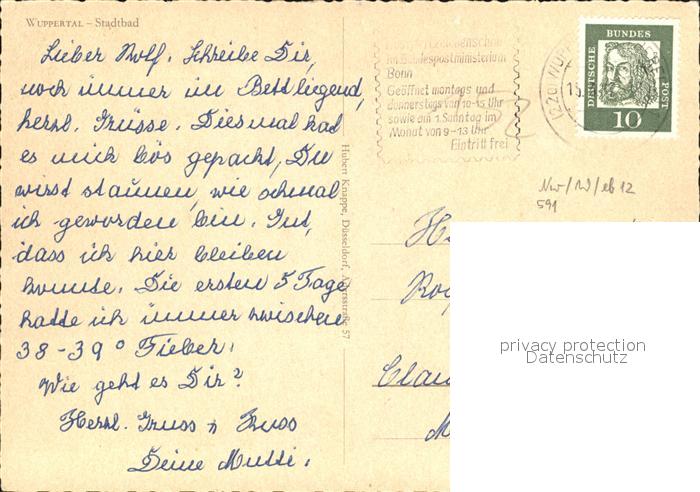 WUPPERTAL – Stadtbad
Lieber Rolf. Schreibe Dir,
noch immer im Bett liegend,
herzl. Grüsse. Diesmal hat
es mich bös gepackt, Du
wirst staunen, wie schmal
ich geworden bin. Gut,
dass ich hier bleiben
konnte. Die ersten 5 Tage
hatte ich immer zwischen
38-39° Fieber.
Wie geht es Dir?
Herzl. Gruss + Kuss
Deine Mutti.
Hubert Knappe, Düsseldorf, Adersstraße 57
im Bundespostministerium
Bonn
Geöffnet montags und
donnerstags von 10-15 Uhr
sowie am 1. Sonntag im
Monat von 9-13 Uhr
Eintritt frei
DEUTSCHE BUNDES POST
10
591
privacy protection
Datenschutz